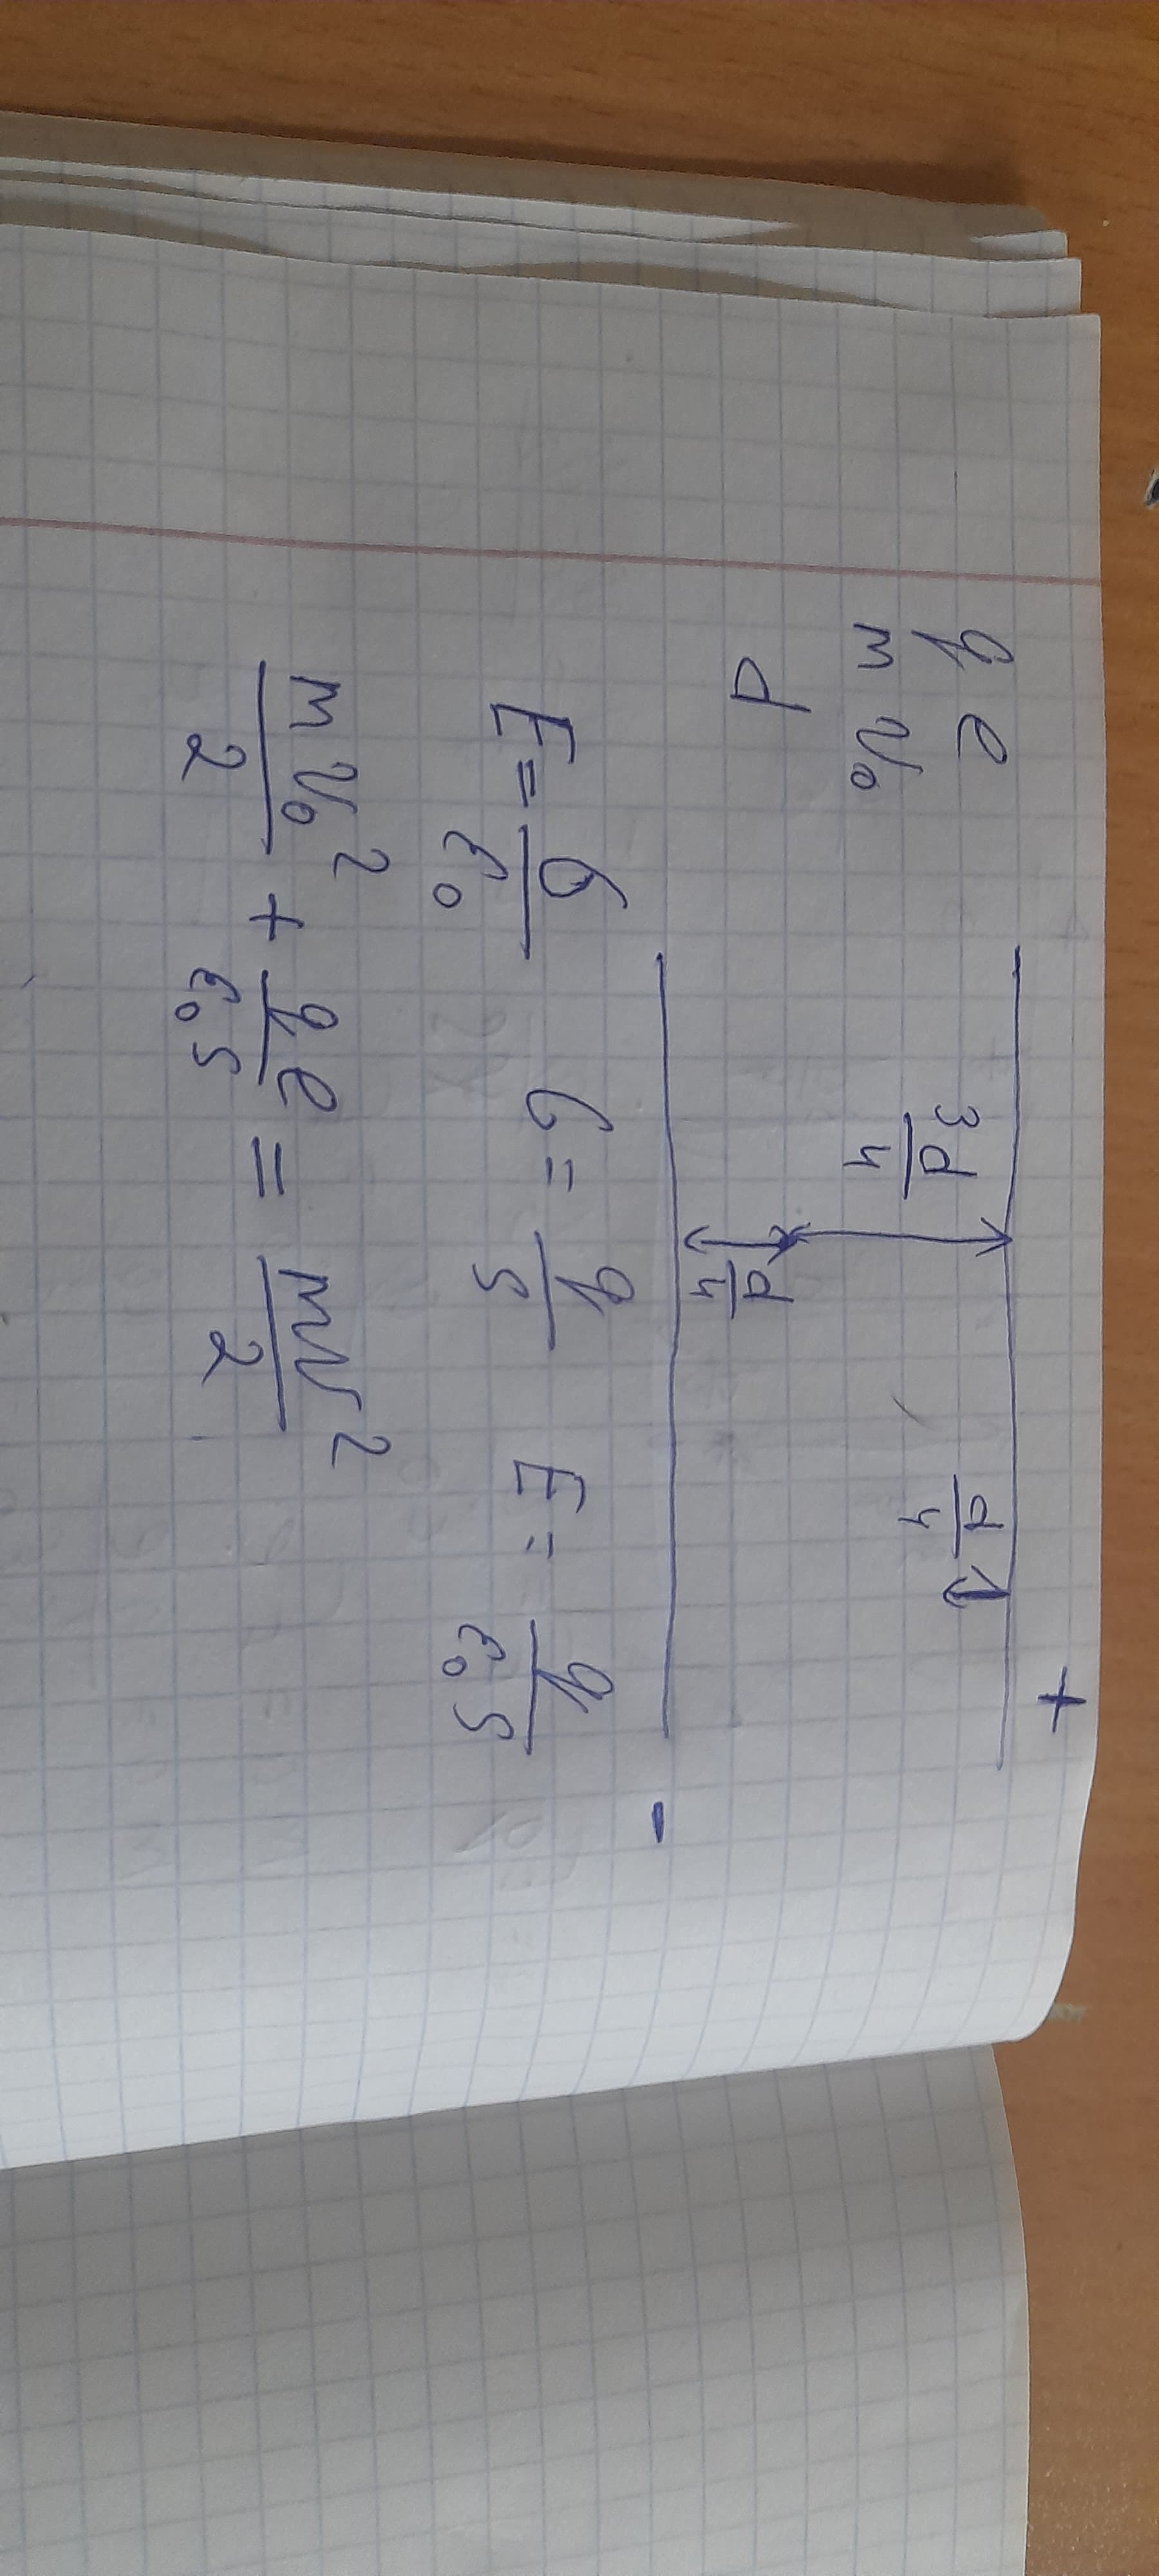 q e
m v₀
d
+
3d/4
d/4
d/4
-
E = σ/ε₀ σ = q/S E = q/ε₀S
mv₀²/2 + qe/ε₀S = mv²/2